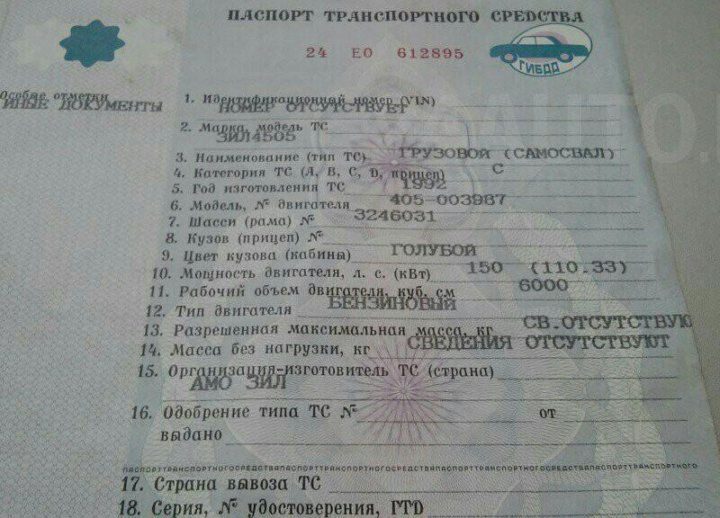 ПАСПОРТ ТРАНСПОРТНОГО СРЕДСТВА
24 ЕО 612895
ГИБДД
Особые отметки
ИНЫЕ ДОКУМЕНТЫ
1. Идентификационный номер (VIN)
НОМЕР ОТСУТСТВУЕТ
2. Марка, модель ТС
ЗИЛ4505
3. Наименование (тип ТС) ГРУЗОВОЙ (САМОСВАЛ)
4. Категория ТС (A, B, C, D, прицеп) C
5. Год изготовления ТС 1992
6. Модель, № двигателя 405-003987
7. Шасси (рама) № 3246031
8. Кузов (прицеп) №
9. Цвет кузова (кабины) ГОЛУБОЙ
10. Мощность двигателя, л. с. (кВт) 150 (110.33)
11. Рабочий объем двигателя, куб. см 6000
12. Тип двигателя БЕНЗИНОВЫЙ
13. Разрешенная максимальная масса, кг СВ.ОТСУТСТВУЮ
14. Масса без нагрузки, кг СВЕДЕНИЯ ОТСУТСТВУЮТ
15. Организация-изготовитель ТС (страна)
АМО ЗИЛ
16. Одобрение типа ТС № от
выдано
ПАСПОРТТРАНСПОРТНОГОСРЕДСТВАПАСПОРТТРАНСПОРТНОГОСРЕДСТВАПАСПОРТТРАНСПОРТНОГОСРЕДСТВАПАСПОРТТРАНСПОРТНОГО
17. Страна вывоза ТС
18. Серия, № удостоверения, ГТD